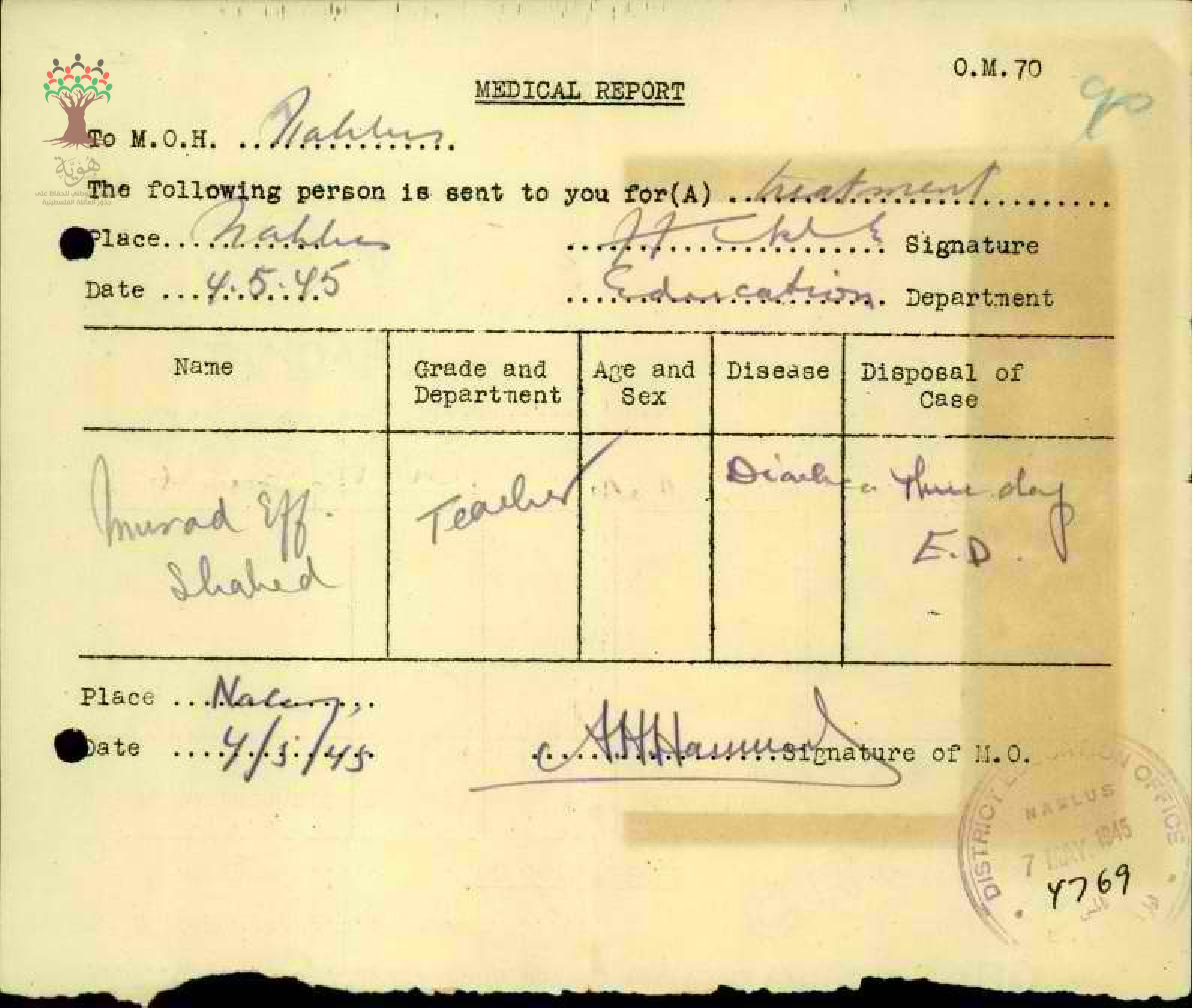 O.M. 70
90
MEDICAL REPORT
To M.O.H. ... Nablus ...
هوية
The following person is sent to you for(A) ... treatment ...
Place... Nablus ... Signature
Date ... 4.5.45 ... Education ... Department
Name Grade and Department Age and Sex Disease Disposal of Case
Murad Eff. Teacher Three day
Shahed E.D.
Place ... Nablus ...
Date .... 4/5/45 ... Signature of M.O.
DISTRICT EDUCATION OFFICE
NABLUS
7 MAY 1945
4769
نابلس